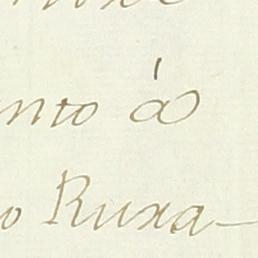 nto á
o Ruxa-